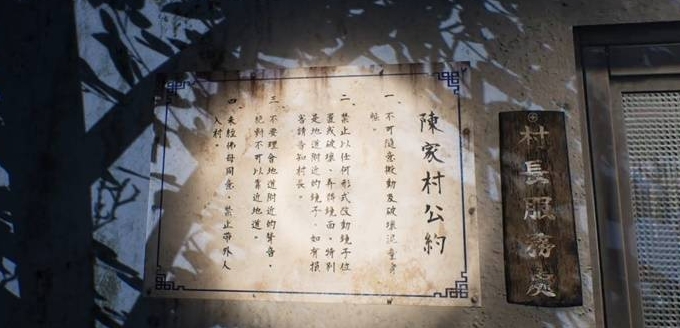 陳家村公約
一、不可隨意搬動及破壞泥童身
軀。
二、禁止以任何形式改動鏡子位
置或破壞、弄髒鏡面，特別
是地道附近的鏡子，如有損
害請告知村長。
三、不要理會地道附近的聲音，
絕對不可以靠近地道。
四、未經佛母同意，禁止帶外人
入村。
村長服務處